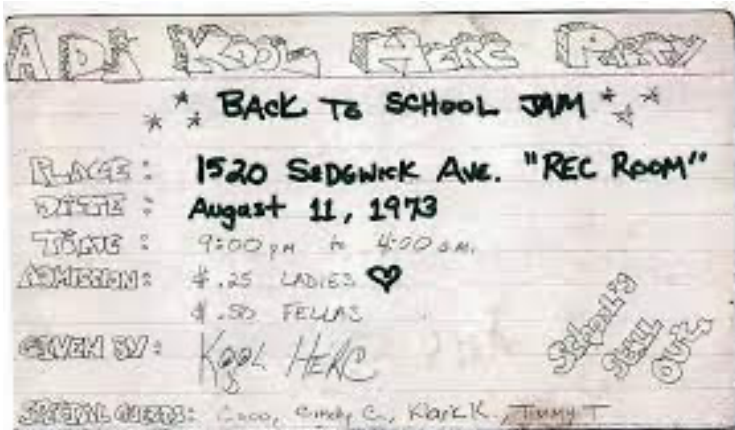 A DJ KOOL HERC PARTY
BACK TO SCHOOL JAM
PLACE: 1520 SEDGWICK AVE. "REC ROOM"
DATE: August 11, 1973
TIME: 9:00 PM to 4:00 AM.
ADMISSION: $.25 LADIES
$.50 FELLAS
GIVEN BY: KOOL HERC
School's Still Out
SPECIAL GUESTS: Coco, Cindy C., Klark K., Timmy T